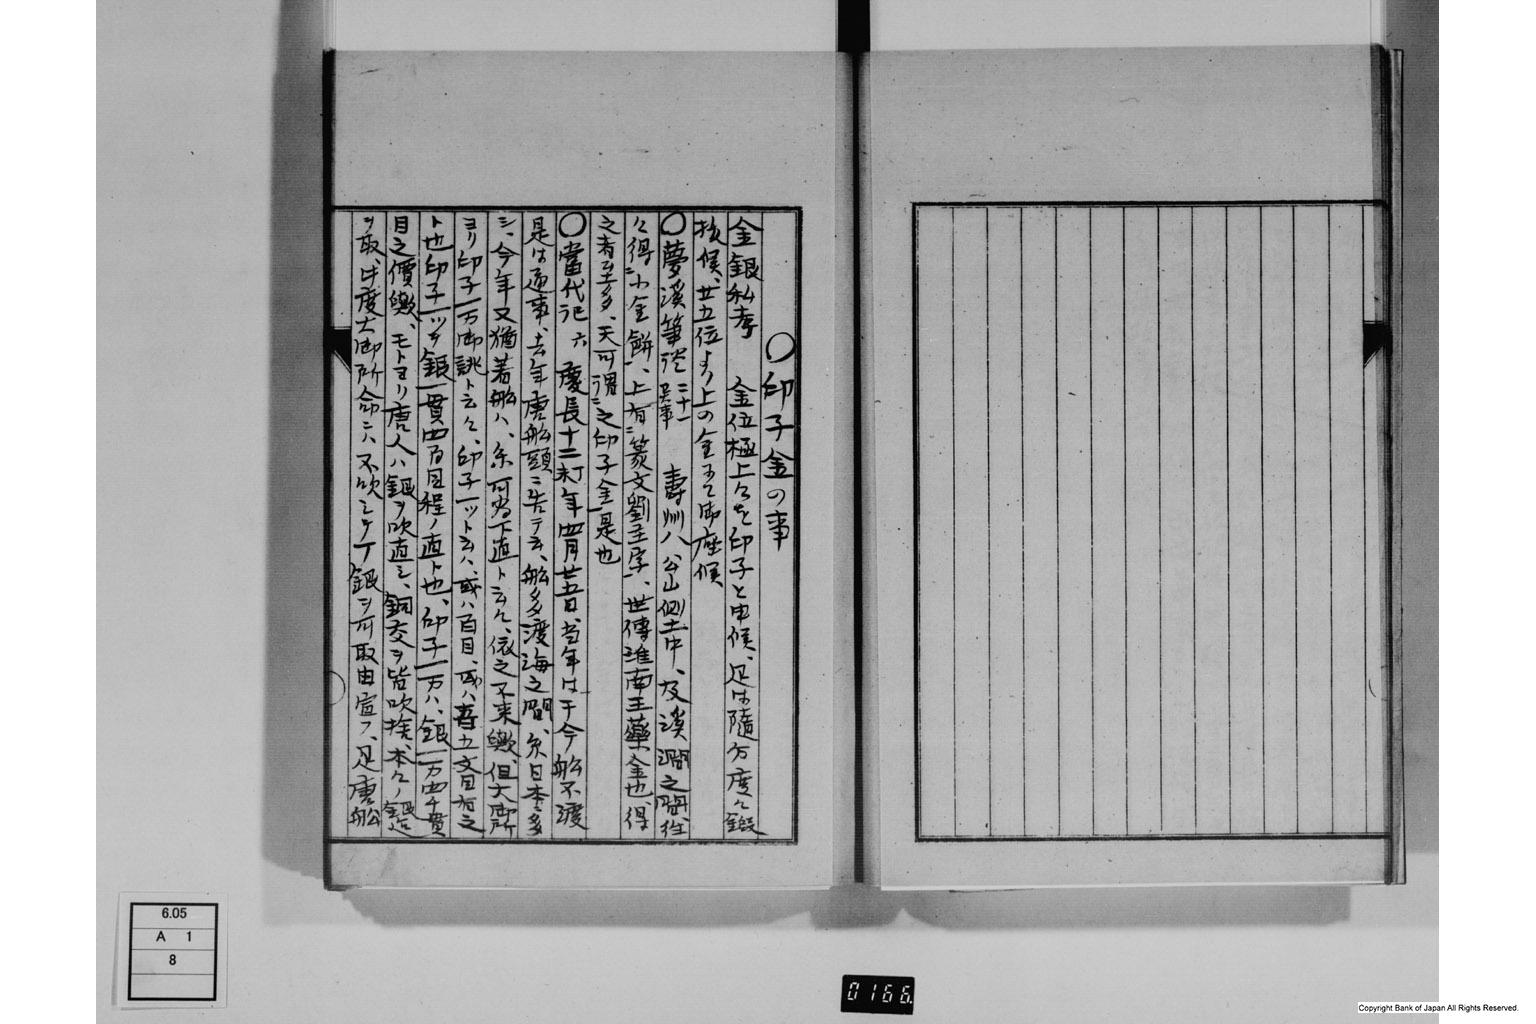 〇印子金の事
金銀私考　金位極上々を印子と申候、是は隨分度々鍛
校候、廿五位より上の金にて御座候
〇夢溪筆談 二十一 異事　壽州八公山側土中、及溪澗之間、往
々得ニ小金餅一、上有ニ篆文劉主字一、世傳淮南王藥金也、得
之者至多、天下謂ニ之印子金一是也
〇當代記 六　慶長十二丁未年四月廿五日、当年は于今船不渡
是は逼事、去年唐船頭ニ告テ云、船多渡海之間、糸日本ニ多
シ、今年又猶着船ハ、糸可為下直ト云々、依之不来歟、但大御所
ヨリ印子一万御誂ト云々、印子一ツト云ハ、或ハ百目、或ハ百五文目有之
ト也印子一ツヲ銀一貫四百目程ノ直ト也、印子一万ハ、銀一万四千貫
目之價歟、モトヨリ唐人ハ銀ヲ吹直シ、銅交ヲ皆吹捨、本々ノ銀
ヲ取、此度大御所命ニハ不吹シテ銀ヲ可取由宣フ、是唐船
6.05
A 1
8
0166.
Copyright Bank of Japan All Rights Reserved.